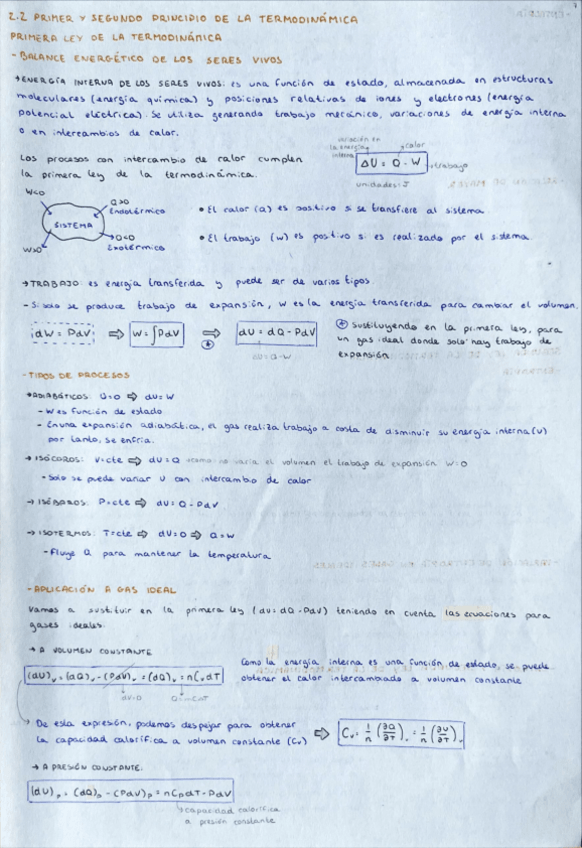 2.2 PRIMER Y SEGUNDO PRINCIPIO DE LA TERMODINÁMICA
PRIMERA LEY DE LA TERMODINÁMICA
- BALANCE ENERGÉTICO DE LOS SERES VIVOS
→ ENERGÍA INTERNA DE LOS SERES VIVOS: es una función de estado, almacenada en estructuras
moleculares (energía química) y posiciones relativas de iones y electrones (energía
potencial eléctrica). Se utiliza generando trabajo mecánico, variaciones de energía interna
o en intercambios de calor.
Los procesos con intercambio de calor cumplen
la primera ley de la termodinámica.
variación en
la energía
interna
calor
ΔU = Q - W
trabajo
unidades: J
W<0
Q>0
Endotérmico
SISTEMA
W>0
Q<0
Exotérmico
• El calor (Q) es positivo si se transfiere al sistema.
• El trabajo (W) es positivo si es realizado por el sistema.
→ TRABAJO: es energía transferida y puede ser de varios tipos
- Si solo se produce trabajo de expansión, W es la energía transferida para cambiar el volumen.
dW = PdV ⇒ W = ∫PdV ⇒ dU = dQ - PdV
ΔU = Q - W
Sustituyendo en la primera ley, para
un gas ideal donde solo hay trabajo de
expansión
- TIPOS DE PROCESOS
→ ADIABÁTICOS: Q=0 ⇒ dU = W
- W es función de estado
- En una expansión adiabática, el gas realiza trabajo a costa de disminuir su energía interna (U)
por tanto, se enfría.
→ ISÓCOROS: V=cte ⇒ dU = Q como no varía el volumen el trabajo de expansión W=0
- Solo se puede variar U con intercambio de calor
→ ISÓBAROS: P=cte ⇒ dU = Q - PdV
→ ISOTERMOS: T=cte ⇒ dU=0 ⇒ Q=W
- Fluye Q para mantener la temperatura
- APLICACIÓN A GAS IDEAL
Vamos a sustituir en la primera ley (dU = dQ - PdV) teniendo en cuenta las ecuaciones para
gases ideales:
→ A VOLUMEN CONSTANTE
(dU)v = (dQ)v - (PdV)v = (dQ)v = nCvdT
dV=0
Como la energía interna es una función de estado, se puede
obtener el calor intercambiado a volumen constante
De esta expresión, podemos despejar para obtener
la capacidad calorífica a volumen constante (Cv) ⇒ Cv = 1/n (∂Q/∂T)v = 1/n (∂U/∂T)v
→ A PRESIÓN CONSTANTE.
(dU)p = (dQ)p - (PdV)p = nCpdT - PdV
capacidad calorífica
a presión constante